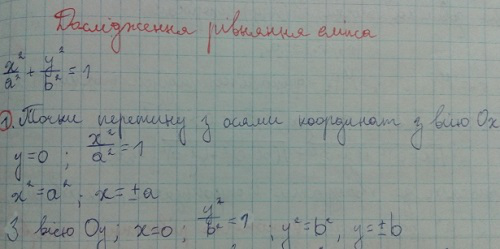 Дослідження рівняння еліпса
x²/a² + y²/b² = 1
1). Точки перетину з осями координат з вісю Ox
y=0 ; x²/a² = 1
x² = a² ; x = ±a
З вісю Oy; x=0; y²/b² = 1 ; y² = b², y = ±b